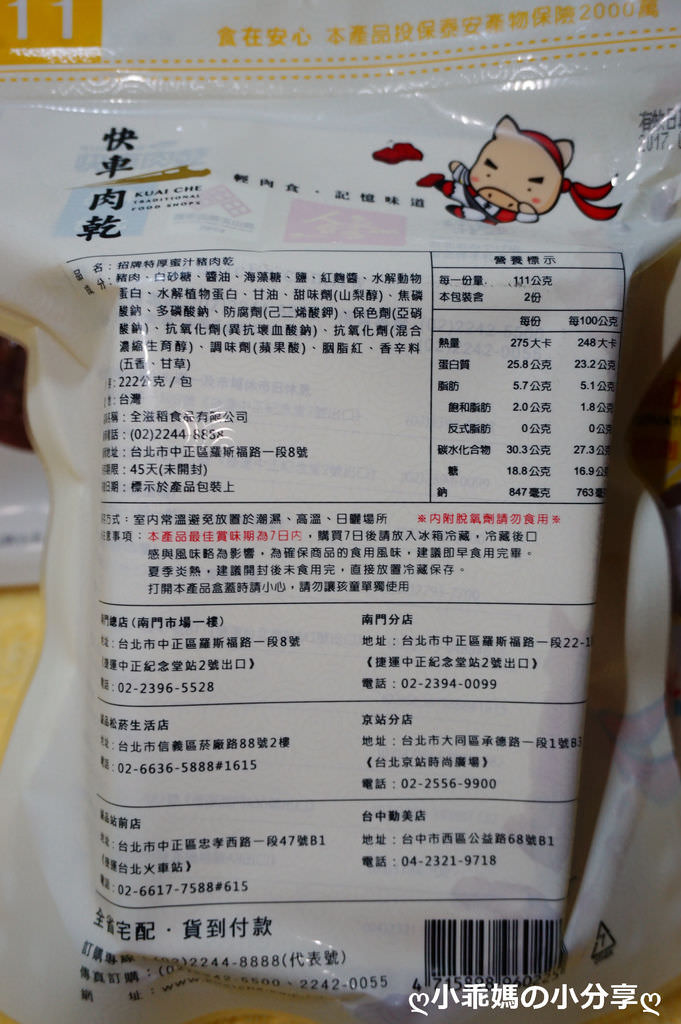 11
食在安心 本產品投保泰安產物保險2000萬
快車肉乾
KUAI CHE
TRADITIONAL
FOOD SHOPS
輕肉食・記憶味道
2017.
名：招牌特厚蜜汁豬肉乾
分：豬肉、白砂糖、醬油、海藻糖、鹽、紅麴醬、水解動物
蛋白、水解植物蛋白、甘油、甜味劑(山梨醇)、焦磷
酸鈉、多磷酸鈉、防腐劑(己二烯酸鉀)、保色劑(亞硝
酸鈉)、抗氧化劑(異抗壞血酸鈉)、抗氧化劑(混合
濃縮生育醇)、調味劑(蘋果酸)、胭脂紅、香辛料
(五香、甘草)
：222公克／包
地：台灣
稱：全滋稻食品有限公司
話：(02)2244-8858
地址：台北市中正區羅斯福路一段8號
期限：45天(未開封)
日期：標示於產品包裝上
營養標示
每一份量 111公克
本包裝含 2份
每份 每100公克
熱量 275大卡 248大卡
蛋白質 25.8公克 23.2公克
脂肪 5.7公克 5.1公克
飽和脂肪 2.0公克 1.8公克
反式脂肪 0公克 0公克
碳水化合物 30.3公克 27.3公克
糖 18.8公克 16.9公克
鈉 847毫克 763毫克
方式：室內常溫避免放置於潮濕、高溫、日曬場所 ※內附脫氧劑請勿食用※
注意事項：本產品最佳賞味期為7日內，購買7日後請放入冰箱冷藏，冷藏後口
感與風味略為影響，為確保商品的食用風味，建議即早食用完畢。
夏季炎熱，建議開封後未食用完，直接放置冷藏保存。
打開本產品盒蓋時請小心，請勿讓孩童單獨使用
南門總店(南門市場一樓)
地址：台北市中正區羅斯福路一段8號
《捷運中正紀念堂站2號出口》
電話：02-2396-5528
南門分店
地址：台北市中正區羅斯福路一段22-1
《捷運中正紀念堂站2號出口》
電話：02-2394-0099
誠品松菸生活店
地址：台北市信義區菸廠路88號2樓
電話：02-6636-5888#1615
京站分店
地址：台北市大同區承德路一段1號B3
《台北京站時尚廣場》
電話：02-2556-9900
誠品站前店
地址：台北市中正區忠孝西路一段47號B1
《捷運台北火車站》
電話：02-6617-7588#615
台中勤美店
地址：台中市西區公益路68號B1
電話：04-2321-9718
全省宅配・貨到付款
訂購專線：(02)2244-8888(代表號)
傳真訂購：5500、2242-0055
網 址：www.
ღ小乖媽の小分享ღ